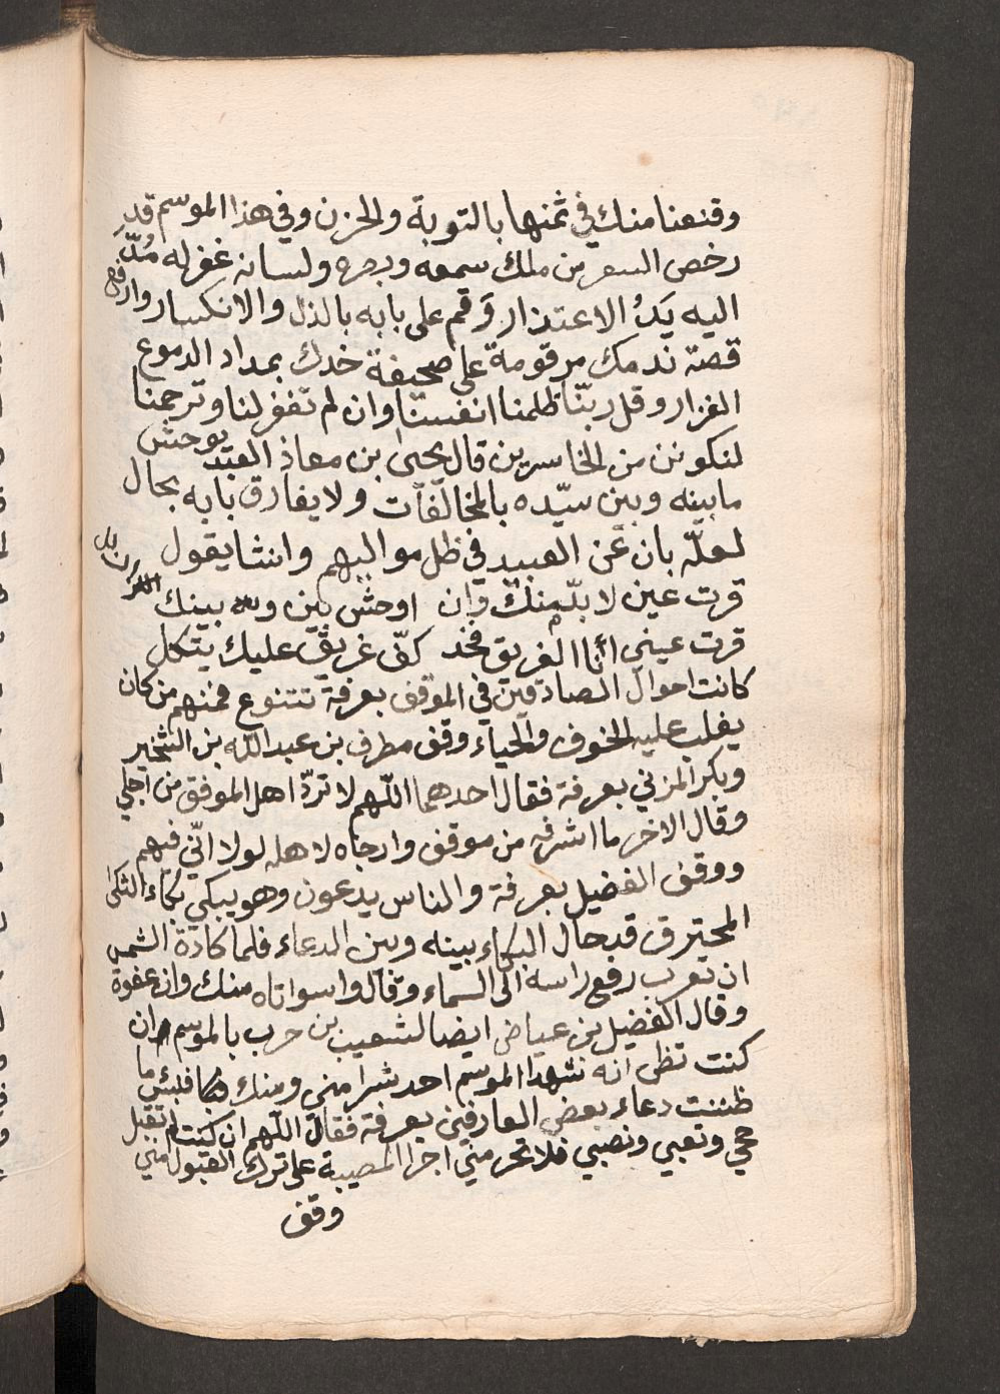 وقنعنا منك في ثمنها بالتوبة والحزن وفي هذا الموسم قد
رخص السعر من ملك سمعه وبصره ولسانه غفر له مُدّ
اليه يَدُ الاعتذار وَقم على بابه بالذل والانكسار وارفع
قصة ندمك مرقومة على صحيفة خدك بمداد الدموع
الغزار وقل ربّنا ظلمنا انفسنا وان لم تغفر لنا وترحمنا
لنكونن من الخاسرين قال يحيى بن معاذ العبد يوحش
ما بينه وبين سيّده بالمخالفات ولا يفارق بابه بحال
لعلّه بان عّن العبيد في ظل مواليهم وانشا يقول
قرت عين لا بدّ منك وان اوحش بين وبينك الزلل
قرت عيني أنا الغريق فخد كفّ غريق عليك يتكل
كانت احوال الصادقين في الموقف بعرفة تتنوع فمنهم من كان
يغلب عليه الخوف والحياء وقف مطرف بن عبد الله بن الشخير
وبكر المزني بعرفة فقال احدهما اللّهم لا تردّ اهل الموفق من اجلي
وقال الاخر ما اشرفه من موقف وارجاه لاهله لولا انّي فيهم
ووقف الفضيل بعرفة والناس يدعون وهو يبكي بكاء الثكلى
المحترق قد حال البكاء بينه وبين الدعاء فلما كادة الشمس
ان تغرب رفع راسه الى السماء وقال واسواتاه منك وان عفوة
وقال الفضيل بن عياض ايضا لشعيب بن حرب بالموسم ان
كنت تظن انه شهدا الموسم احد شرا مني ومنك فبئس ما
ظننت دعاء بعض العارفين بعرفة فقال اللّهم ان كنت لم تقبل
حجي وتعبي ونصبي فلا تحرمني اجر المصيبة على ترك القبول مني
وقف